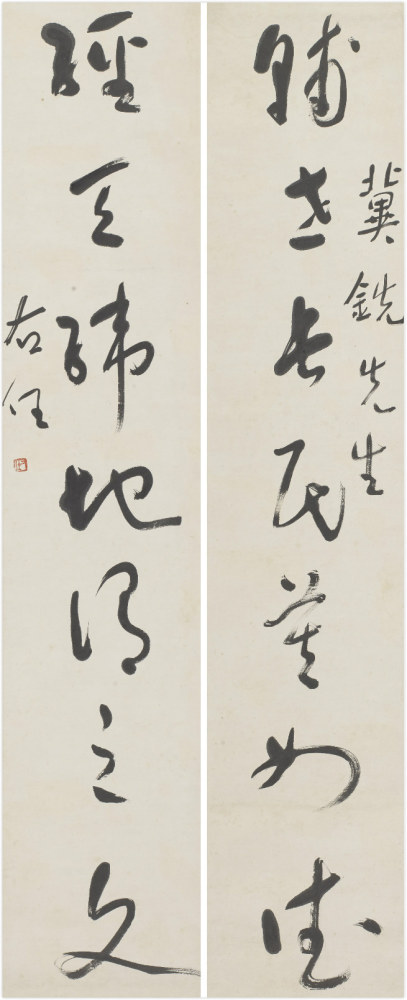 冀銑先生
輔世長民莫如德
經天緯地謂之文
右任